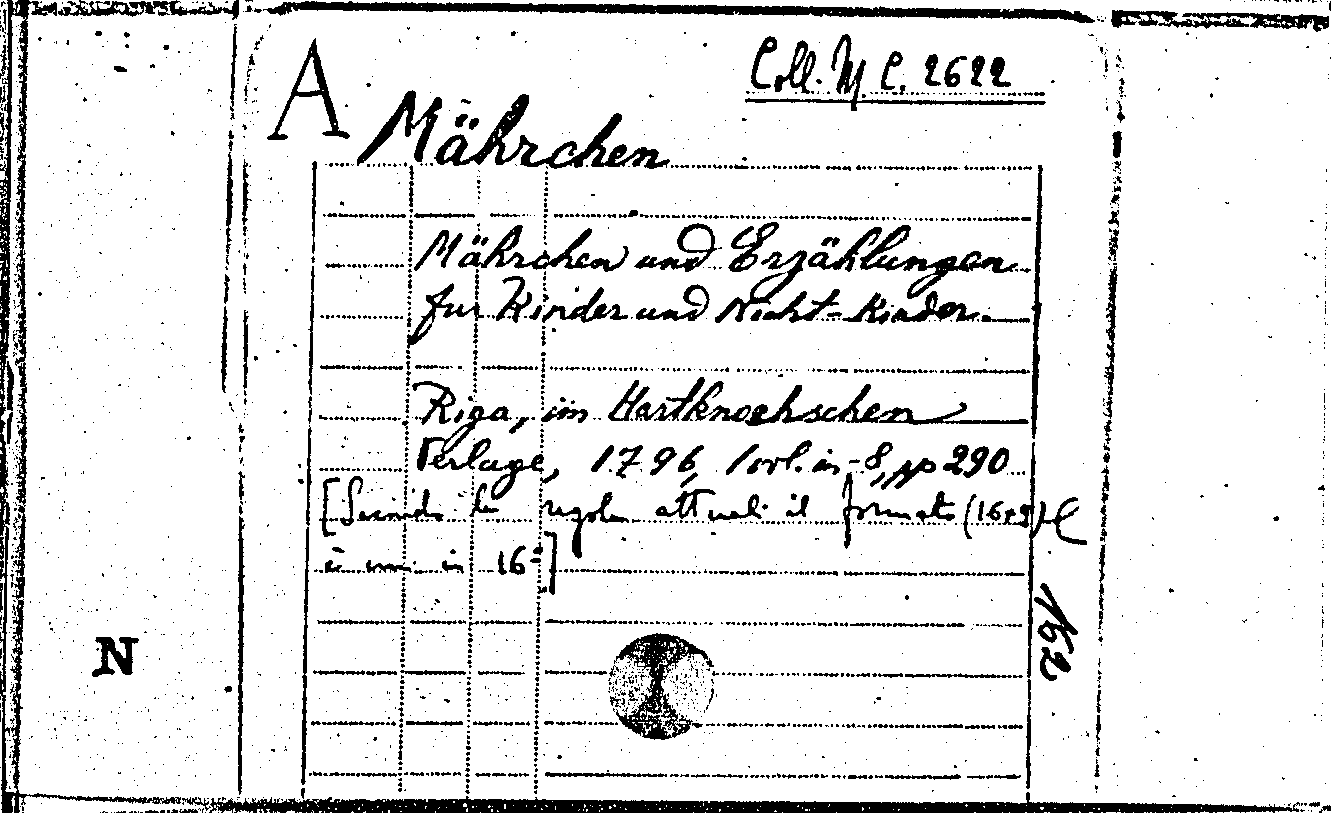 A
Coll. M. C. 2622
Mährchen
Mährchen und Erzählungen
fur Kinder und Nicht-Kinder.
Riga, im Hartknochschen
Verlage, 1796, 1 vol. in-8, pp 290
[Secondo la regola attuale il formato (16x9)
è in 16º]
162
N